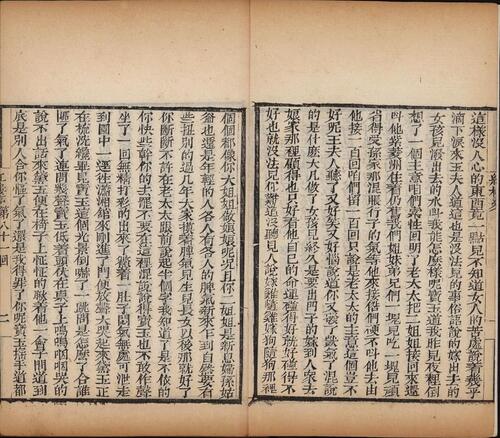 這樣沒人心的東西竟一點兒不知道女人的苦處說着幾乎
滴下淚來王夫人道這也是沒法兒的事俗語說的嫁出去的
女孩兒潑出去的水叫我能怎麼樣呢寶玉道我昨兒夜裡倒
想了一個主意咱們索性回明了老太太把二姐姐接回來還
叫他紫菱洲住着仍舊我們姐妹弟兄們一塊兒吃一塊兒頑
省得受孫家那混賬行子的氣等他來接偺們硬不叫他去由
他接一百回咱們留一百回只說是老太太的主意這個豈不
好呢王夫人聽了又好笑又好惱說道你又發了獃氣了混說
的是什麼大凡做了女孩兒終久是要出門子的嫁到人家去
娘家那裡顧得也只好看他自己的命運碰得好就好碰得不
好也就沒法兒你難道沒聽見人說嫁雞隨雞嫁狗隨狗那裡
個個都像你大姐姐做娘娘呢況且你二姐姐是新媳婦孫姑
爺也還是年輕的人各人有各人的脾氣新來乍到自然要有
些扭別的過幾年大家摸着脾氣兒生兒長女以後那就好了
你斷斷不許在老太太跟前說起半個字我知道了是不依你的
你快些幹你的去罷不要在這裡混說說得寶玉也不敢作聲
坐了一回無精打彩的出來了鱉着一肚子悶氣無處可泄走
到園中一徑往瀟湘館來剛進了門便放聲大哭起來黛玉正
在梳洗纔畢見寶玉這個光景倒嚇了一跳問是怎麼了合誰
慪了氣了連問幾聲寶玉低着頭伏在桌子上嗚嗚咽咽哭的
說不出話來黛玉便在椅子上怔怔的瞅着他一會子問道到
底是別人合你慪了氣了還是我得罪了你呢寶玉搖手道都
第八十一回
二